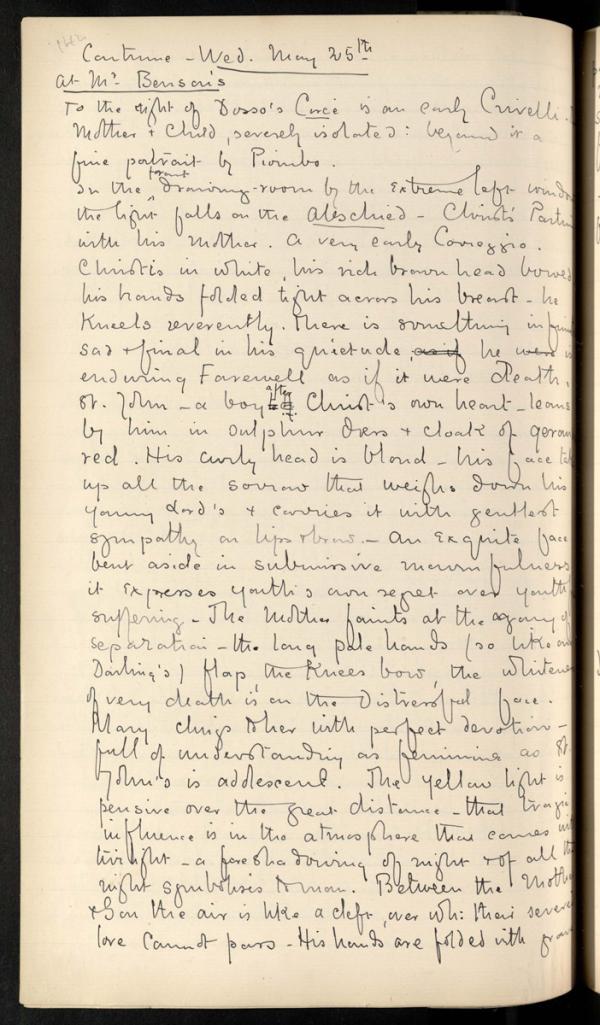 Continue - Wed. May 25th
At Mr. Benson's
To the right of Dosso's Circe is an early Crivelli.
Mother & Child, severely isolated: beyond it a
fine portrait by Piombo.
In the front drawing-room by the extreme left windo
the light falls on the Abschied - Christ's Partin
with his mother. A very early Correggio.
Christ is in white, his rich brown head bowed
his hands folded tight across his breast - he
kneels reverently. There is something infini
sad & final in his quietude, as if he were is
enduring Farewell as if it were death.
St. John - a boy after Christ's own heart - leans
by him in sulphur dress & cloak of geran
red. His curly head is blond - his face tak
up all the sorrow that weighs down his
young Lord's & carries it with gentlest
sympathy on lips & brow. - An exquite face
bent aside in submissive mournfulness
it expresses youth's own regret over youth
suffering - The Mother faints at the agony of
separation - the long pale hands (so like our
Darling's) flap, the knees bow, the whitene
of very death is on the distressful face.
Mary clings to her with perfect devotion -
full of understanding as feminine as St.
John's is adolescent. The yellow light is
pensive over the great distance - that tragic
influence is in the atmosphere that comes with
twilight - a foreshadowing of night & of all th
night symbolises to man. Between the Mothe
& Son the air is like a cleft, over wh: their severe
love cannot pass - His hands are folded with